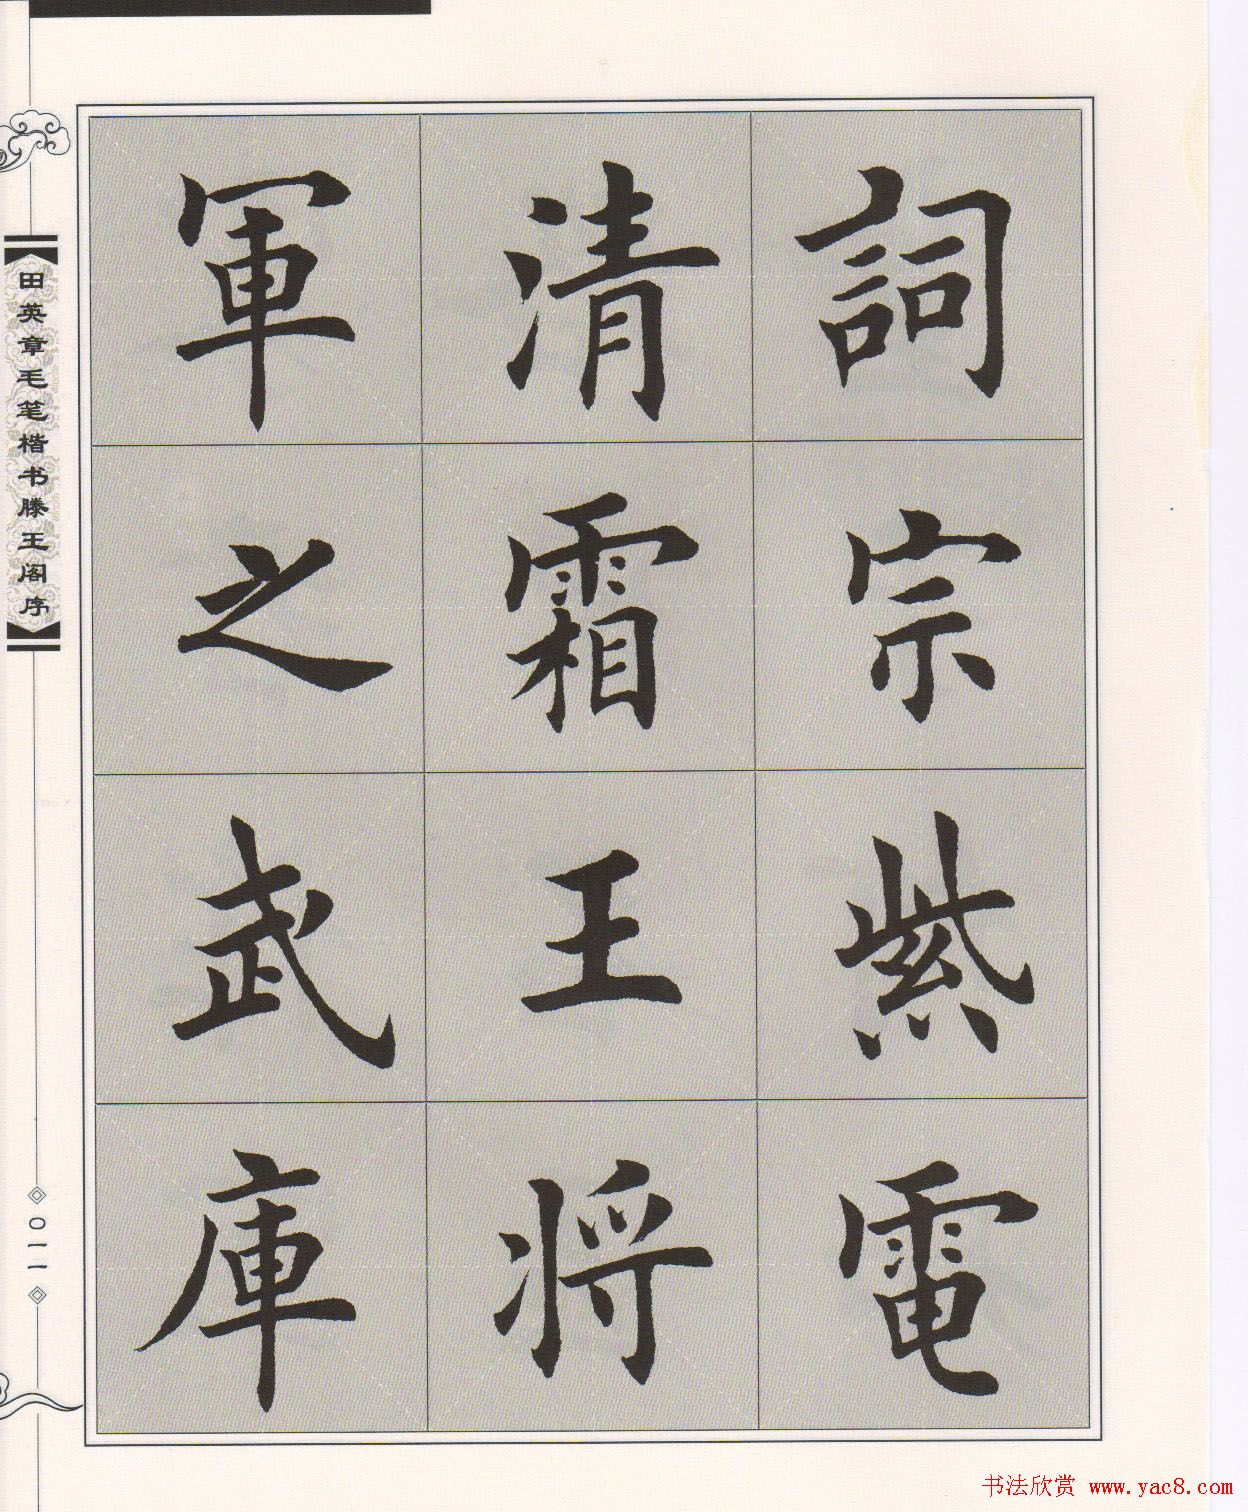 詞宗紫電
清霜王将
軍之武庫
田英章毛笔楷书滕王阁序
〇一一
书法欣赏 www.yac8.com